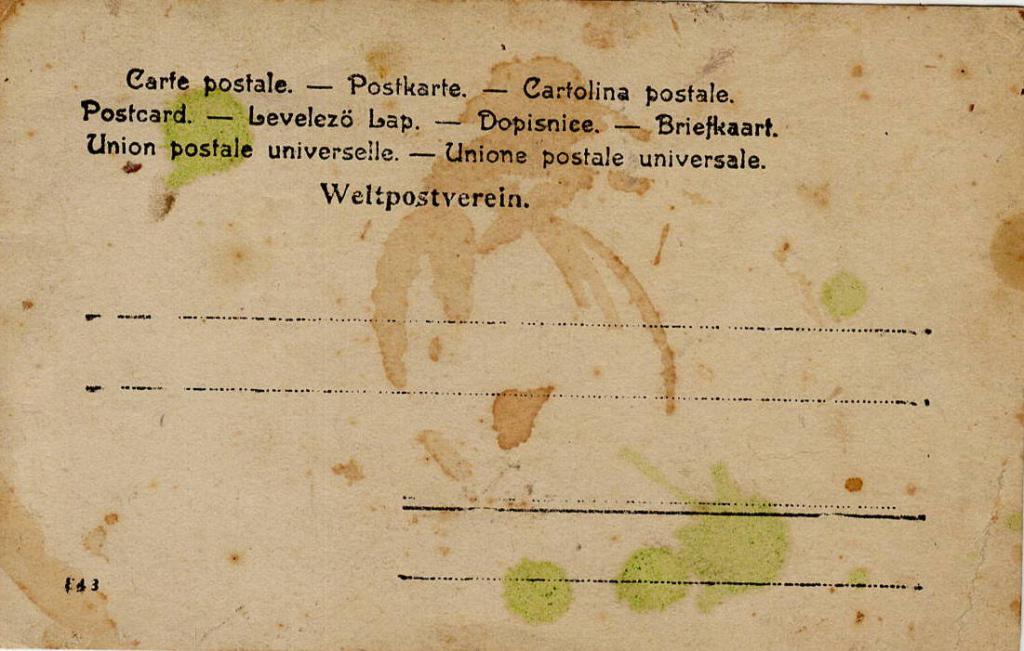 Carte postale. — Postkarte. — Cartolina postale.
Postcard. — Levelezö Lap. — Dopisnice. — Briefkaart.
Union postale universelle. — Unione postale universale.
Weltpostverein.